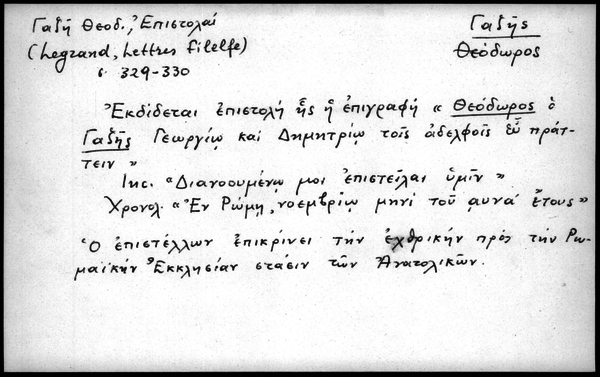 Γαζῆ Θεοδ., Ἐπιστολαί
(Legrand, Lettres Filelfe)
σ. 329-330
Γαζῆς
Θεόδωρος
Ἐκδίδεται ἐπιστολή ἧς ἡ ἐπιγραφή « Θεόδωρος ὁ
Γαζῆς Γεωργίῳ καί Δημητρίῳ τοῖς ἀδελφοῖς εὖ πράτ-
τειν »
Inc. «Διανοουμένῳ μοι ἐπιστεῖλαι ὑμῖν »
Χρονολ. «Ἐν Ρώμῃ, νοεμβρίῳ μηνί τοῦ αυνα΄ ἔτους»
Ὁ ἐπιστέλλων ἐπικρίνει τήν ἐχθρικήν πρός τήν Ρω-
μαϊκήν Ἐκκλησίαν στάσιν τῶν Ἀνατολικῶν.